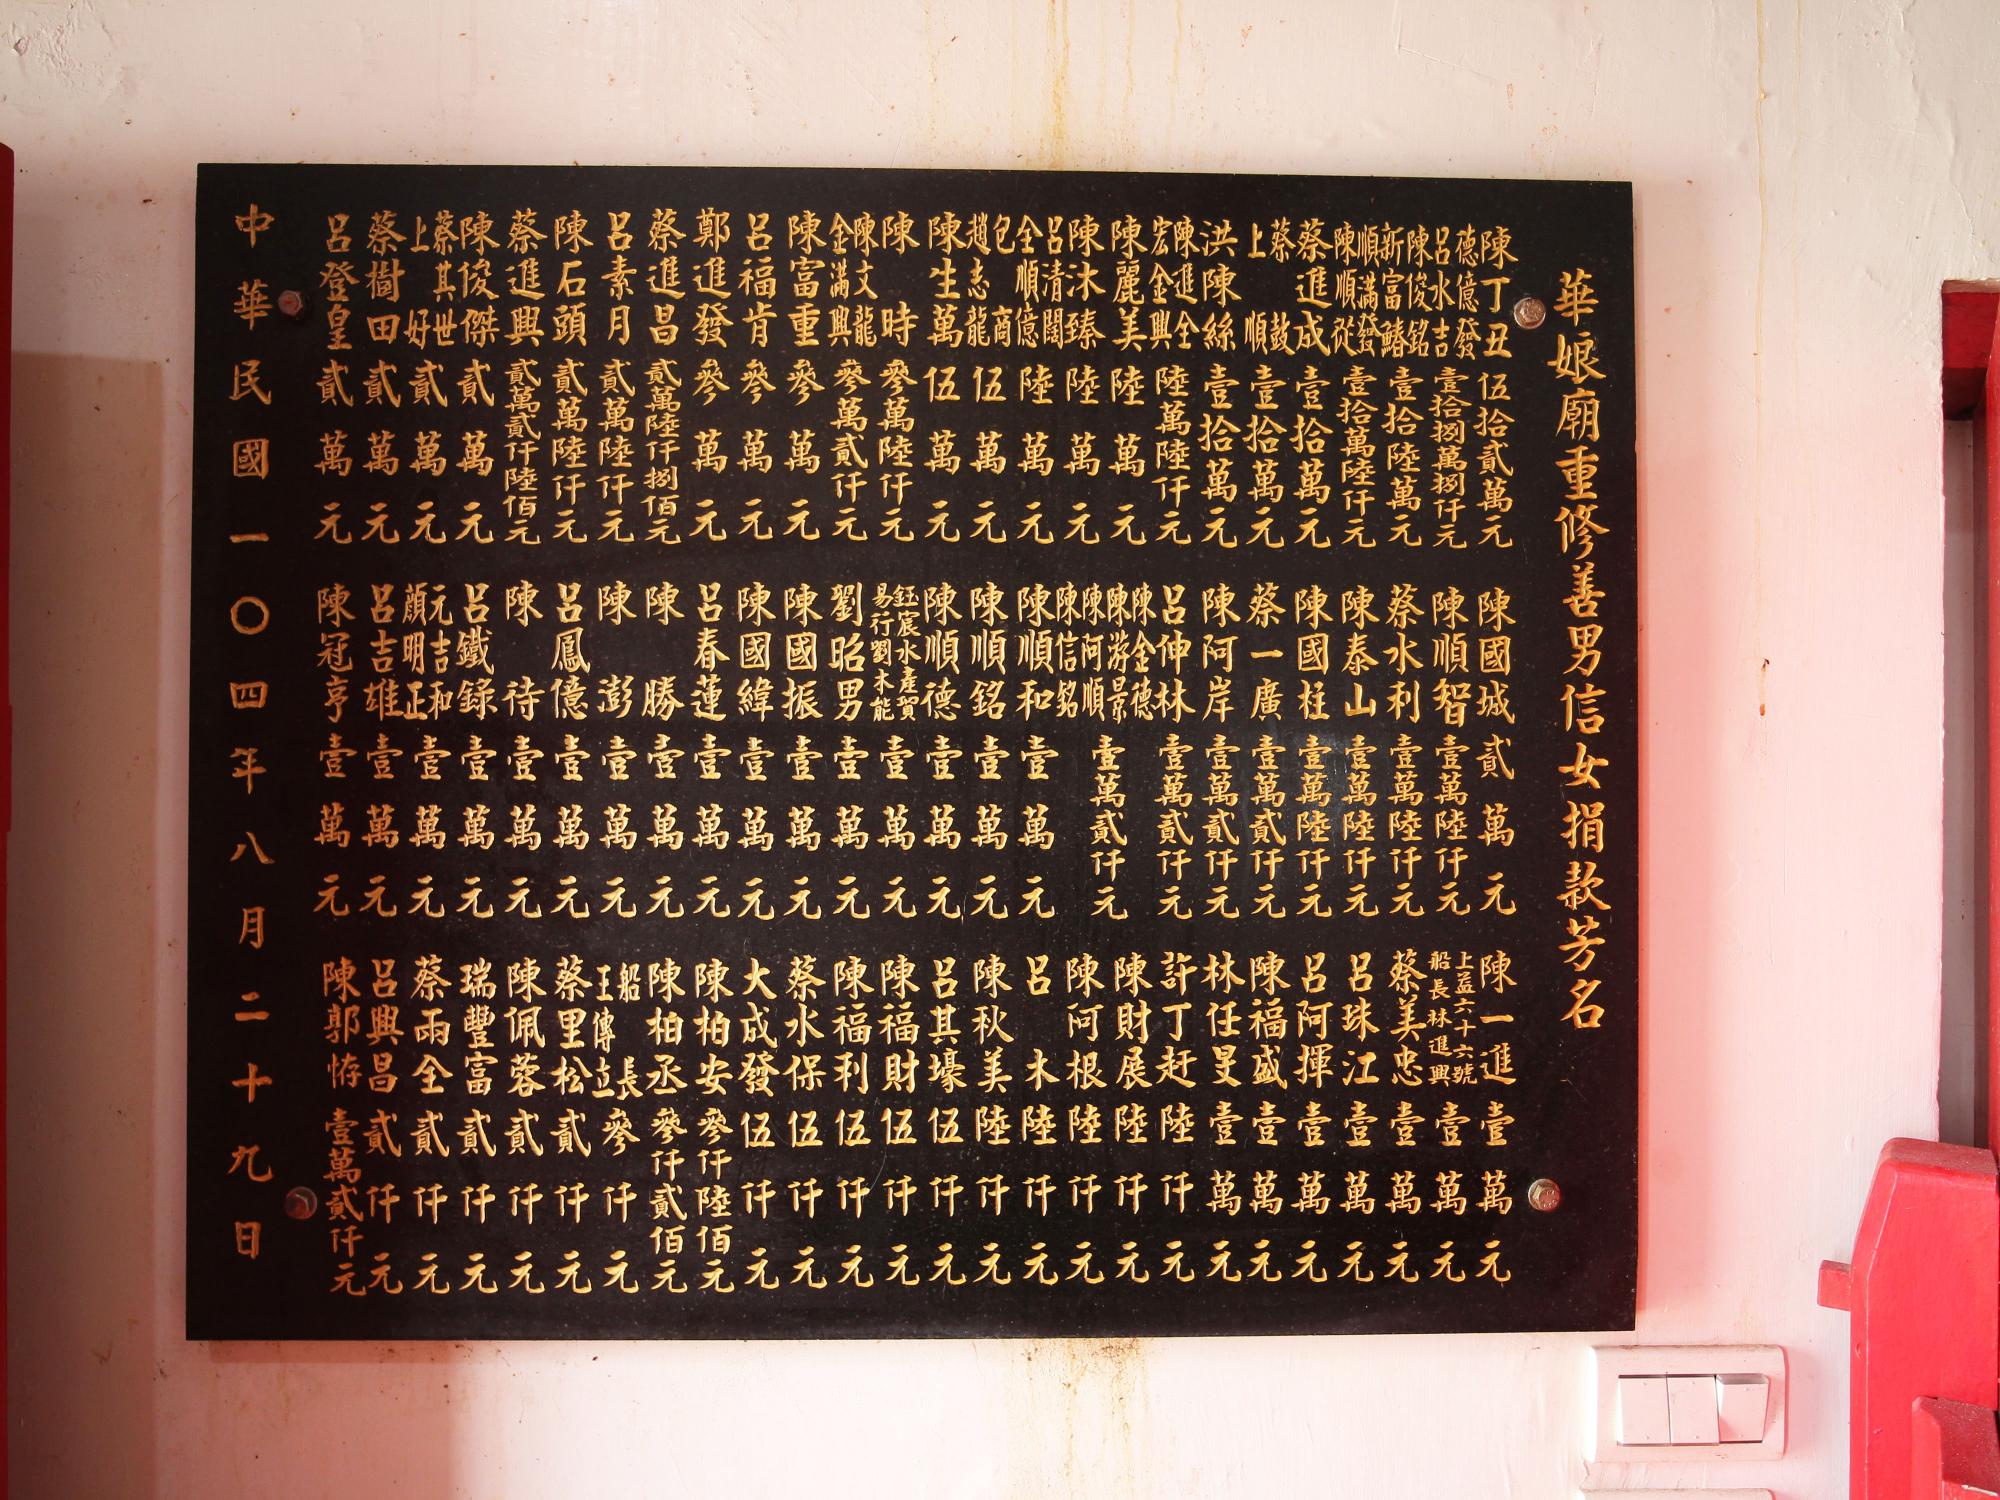 華娘廟重修善男信女捐款芳名
陳丁丑 伍拾貳萬元
德億發 呂水吉 壹拾捌萬捌仟元
陳俊銘 新富鰆 壹拾陸萬元
順滿發 陳順從 壹拾萬陸仟元
蔡進成 壹拾萬元
蔡鼓 上順 壹拾萬元
洪陳絲 壹拾萬元
陳進全 宏金興 陸萬陸仟元
陳麗美 陸萬元
陳沐臻 陸萬元
呂清闊 全順億 陸萬元
包商 趙志龍 伍萬元
陳生萬 伍萬元
陳時 參萬陸仟元
陳文龍 金滿興 參萬貳仟元
陳富重 參萬元
呂福肯 參萬元
鄭進發 參萬元
蔡進昌 貳萬陸仟捌佰元
呂素月 貳萬陸仟元
陳石頭 貳萬陸仟元
蔡進興 貳萬貳仟陸佰元
陳俊傑 貳萬元
蔡其世 上好 貳萬元
蔡樹田 貳萬元
呂登皇 貳萬元
陳國城 貳萬元
陳順智 壹萬陸仟元
蔡水利 壹萬陸仟元
陳泰山 壹萬陸仟元
陳國柱 壹萬陸仟元
蔡一廣 壹萬貳仟元
陳阿岸 壹萬貳仟元
呂伸林 壹萬貳仟元
陳金德 陳游景 陳阿順 陳信銘 壹萬貳仟元
陳順和 壹萬元
陳順銘 壹萬元
陳順德 壹萬元
鈺宸水產賀 易行劉木能 壹萬元
劉昭男 壹萬元
陳國振 壹萬元
陳國緯 壹萬元
呂春蓮 壹萬元
陳勝 壹萬元
陳澎 壹萬元
呂鳳億 壹萬元
陳待 壹萬元
呂鐵錄 壹萬元
元吉和 顏明正 壹萬元
呂吉雄 壹萬元
陳冠亨 壹萬元
陳一進 壹萬元
上益六十六號 船長林進興 壹萬元
蔡美忠 壹萬元
呂珠江 壹萬元
呂阿揮 壹萬元
陳福盛 壹萬元
林任旻 壹萬元
許丁赶 陸仟元
陳財展 陸仟元
陳阿根 陸仟元
呂木 陸仟元
陳秋美 陸仟元
呂其壕 伍仟元
陳福財 伍仟元
陳福利 伍仟元
蔡水保 伍仟元
大成發 伍仟元
陳柏安 參仟陸佰元
陳柏丞 參仟貳佰元
船長 王傳立 參仟元
蔡里松 貳仟元
陳佩蓉 貳仟元
瑞豐富 貳仟元
蔡兩全 貳仟元
呂興昌 貳仟元
陳郭㤝 壹萬貳仟元
中華民國一〇四年八月二十九日